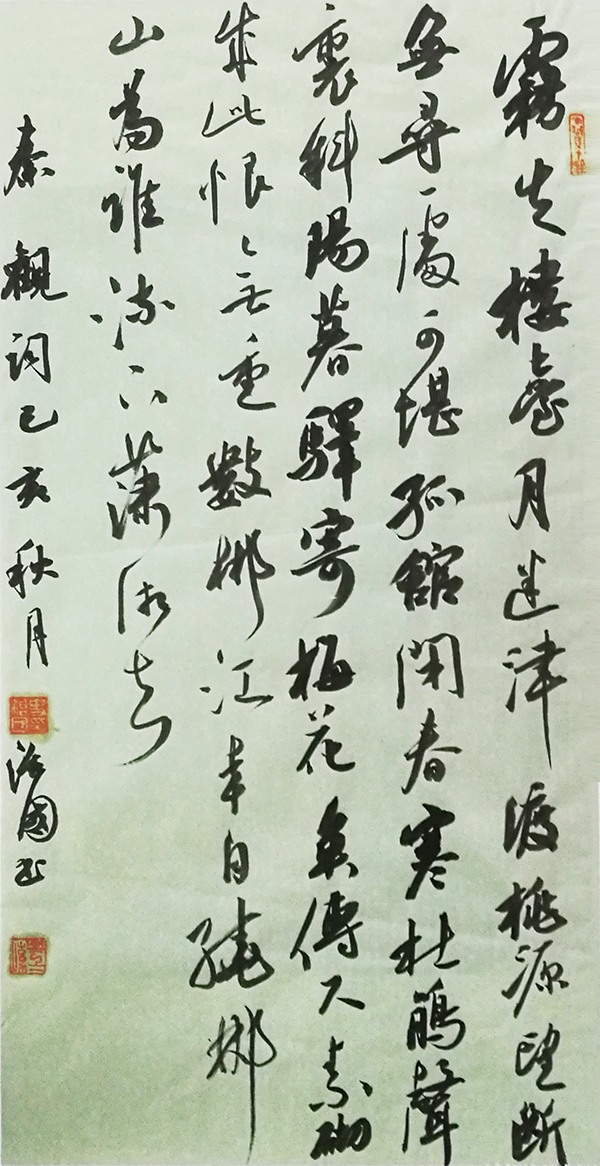 霧失樓臺月迷津渡桃源望斷
無尋處可堪孤館閉春寒杜鵑聲
裏斜陽暮驛寄梅花魚傳尺素砌
成此恨無重數郴江幸自繞郴
山為誰流下瀟湘去
秦觀詞己亥秋月國书